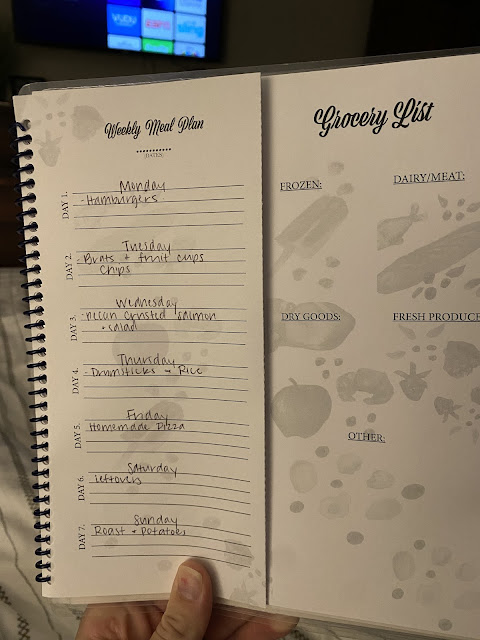 vudu
Weekly Meal Plan
DATES:
DAY 1.
Monday
- Hamburgers
DAY 2.
Tuesday
- Brats + fruit cups
chips
DAY 3.
Wednesday
- pecan crusted salmon
• salad
DAY 4.
Thursday
- Drumsticks + Rice
DAY 5.
Friday
Homemade Pizza
DAY 6.
Saturday
Leftovers
DAY 7.
Sunday
Roast + Potatoes
Grocery List
FROZEN:
DAIRY/MEAT:
DRY GOODS:
FRESH PRODUCE
OTHER: